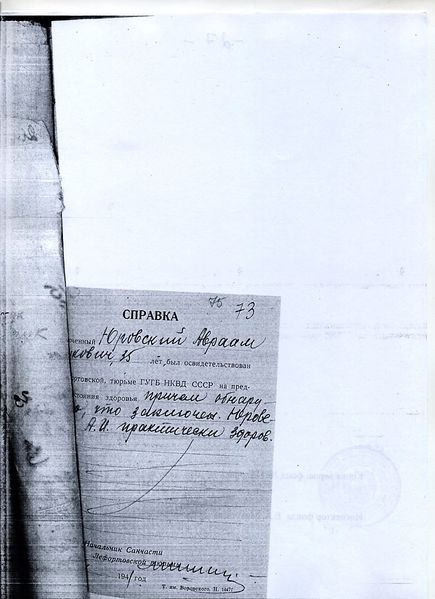 75 73
СПРАВКА
ченный Юровский Авраам
кович, 35 лет, был освидетельствован
ортовской, тюрьме ГУГБ НКВД СССР на пред-
стояния здоровья. причем обнару-
что заключен. Юровс-
А.И. практически здоров.
Начальник Санчасти
Лефортовской тюрьмы
1941 год
Т. им. Воровского. Н. 1447